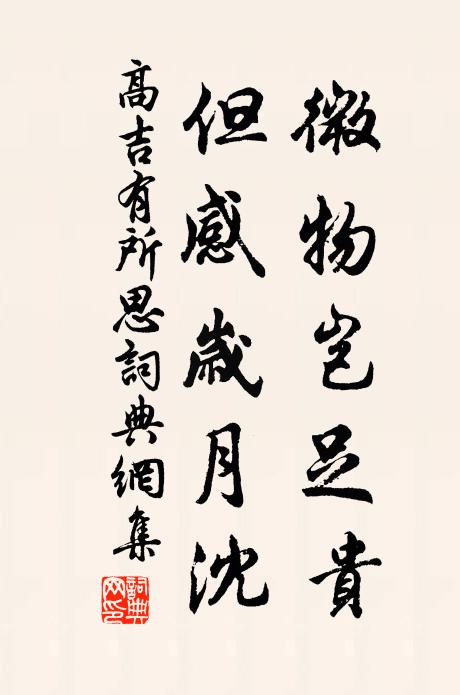 微物岂足貴
但感歳月沈
高吉有所思詞典網集
詞典網印